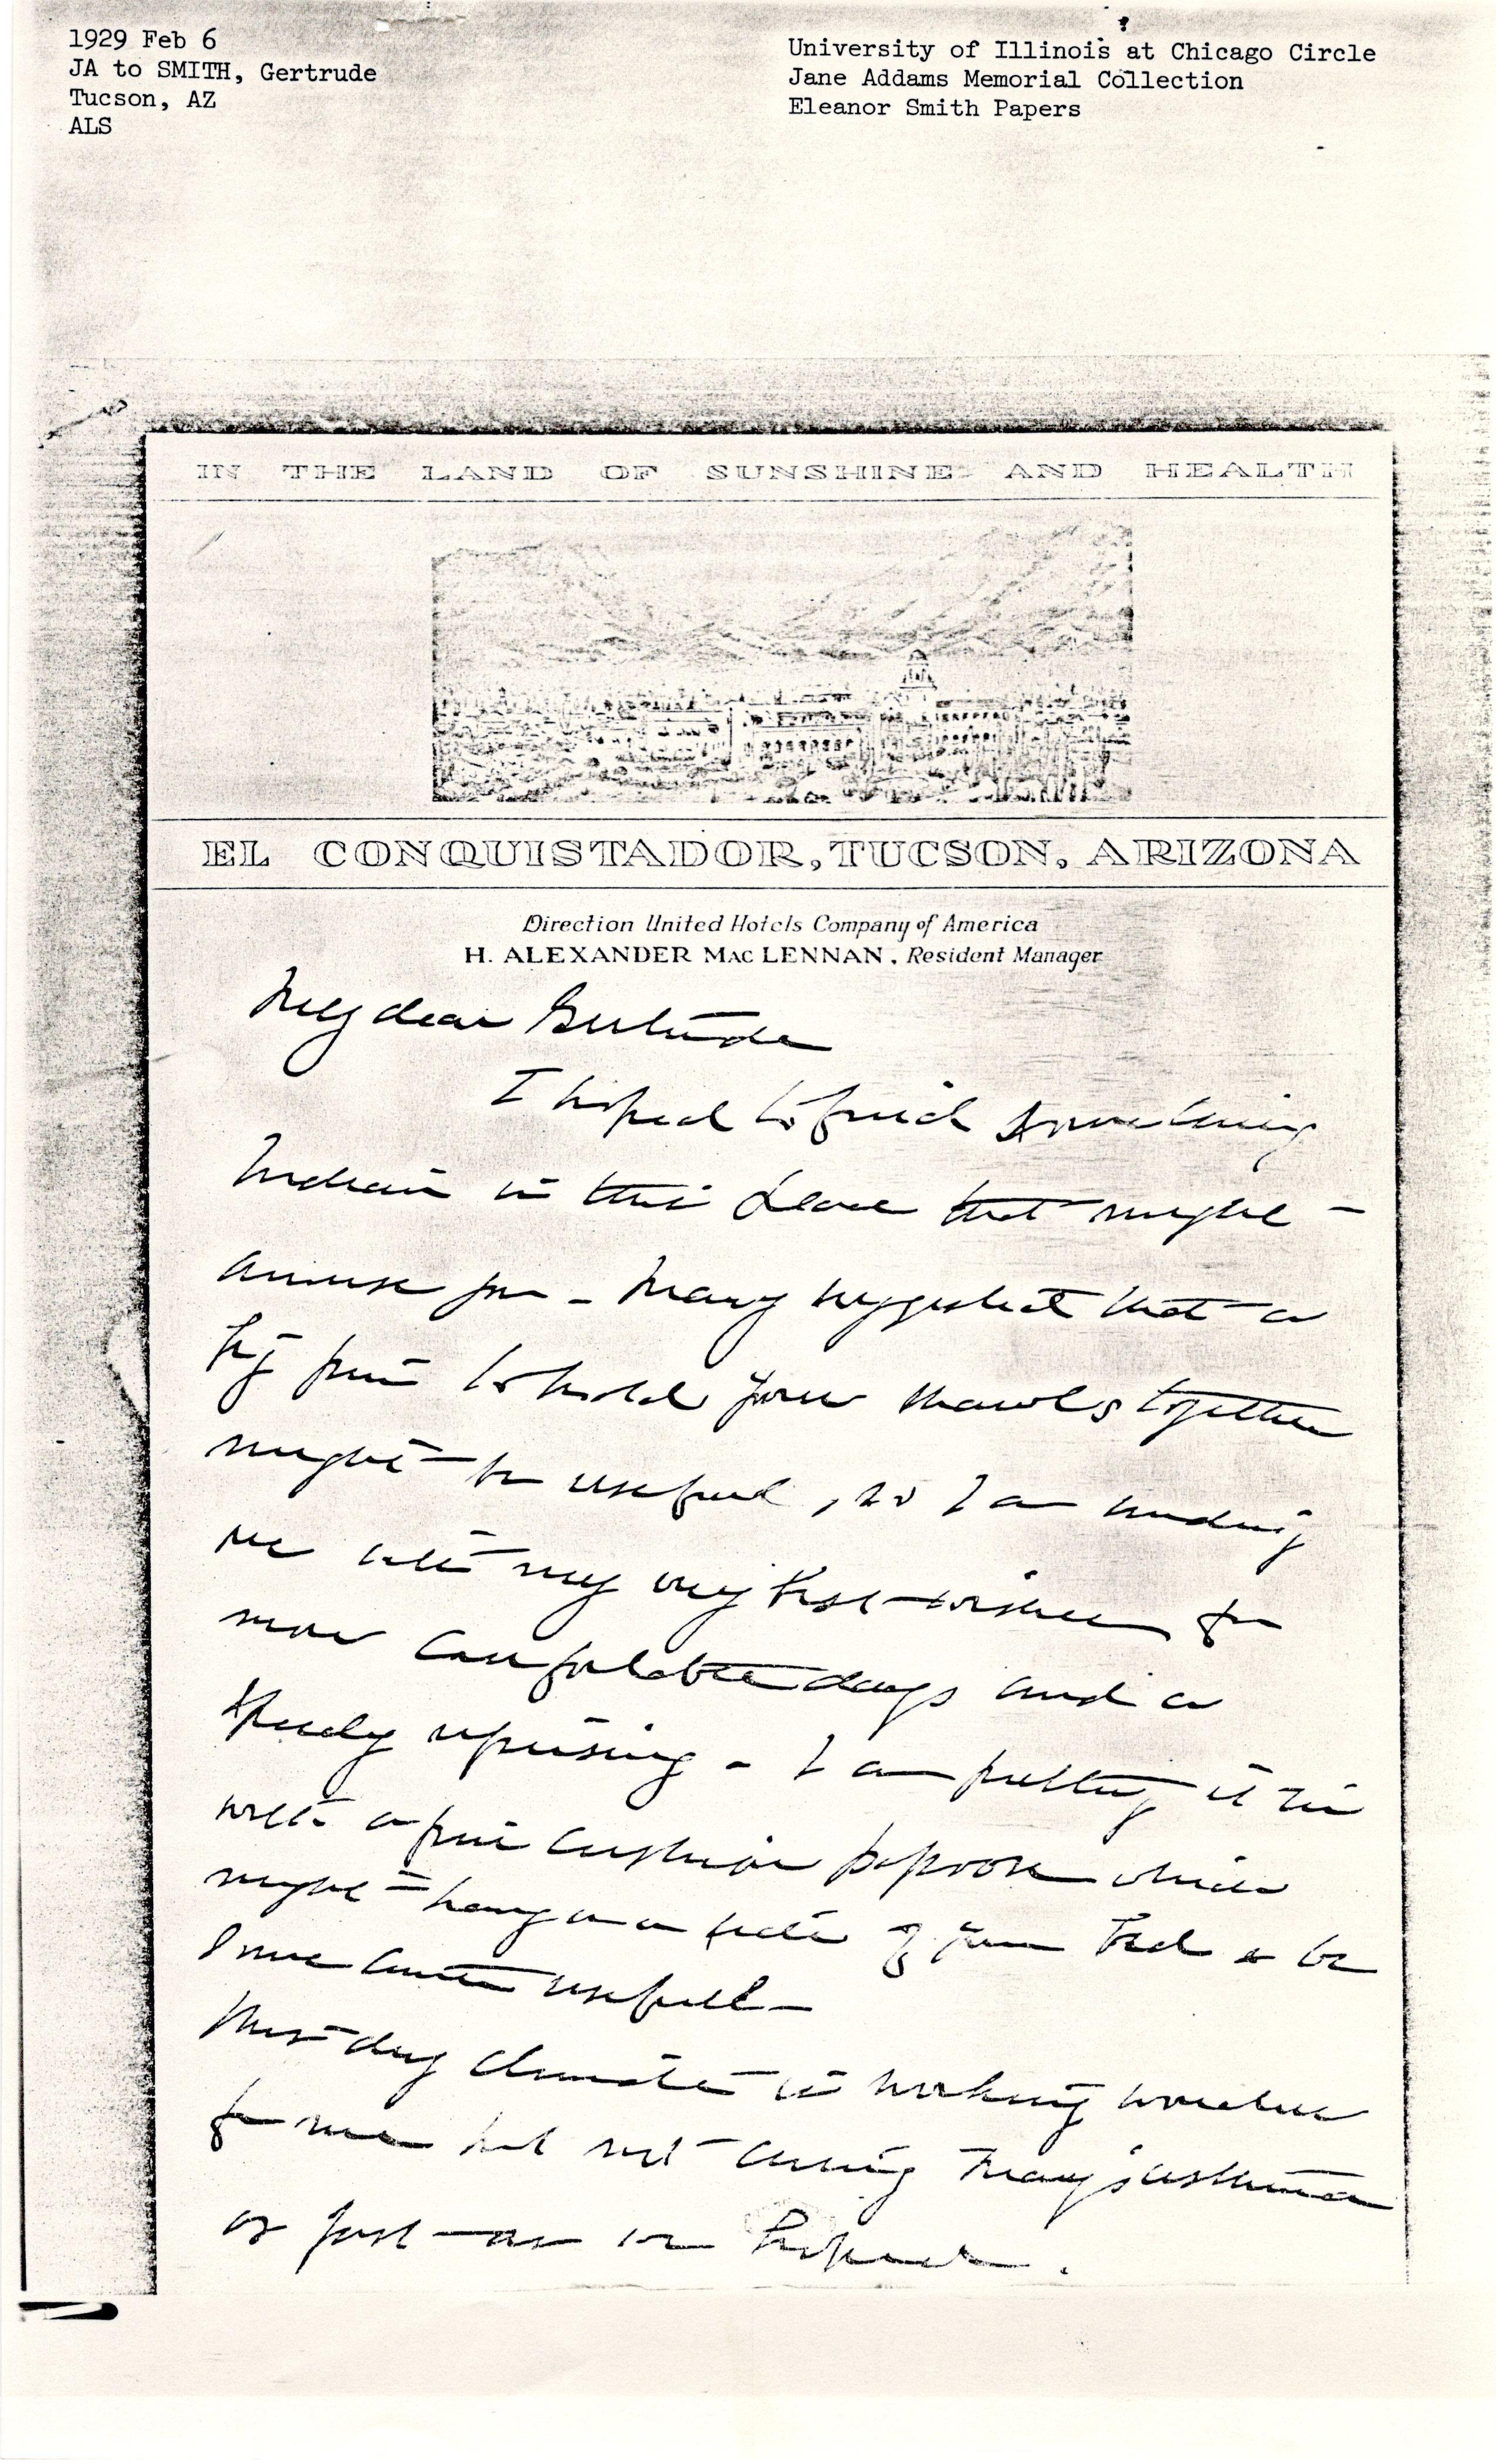 1929 Feb 6
JA to SMITH, Gertrude
Tucson, AZ
ALS
University of Illinois at Chicago Circle
Jane Addams Memorial Collection
Eleanor Smith Papers
IN THE LAND OF SUNSHINE AND HEALTH
EL CONQUISTADOR, TUCSON, ARIZONA
Direction United Hotels Company of America
H. ALEXANDER MAC LENNAN, Resident Manager
My dear Gertrude
I hoped to find something
Indian in this place that might
amuse you - Mary suggested that a
big pin to hold your shawls together
might be useful, so I am sending
one with my very best wishes for
more comfortable days and a
speedy uprising - I am putting it in
with a pin cushion papoose which
might hang on a side of your bed & be
useful -
This dry climate is working wonders
for me but not curing Mary's asthma
as fast as we hoped.